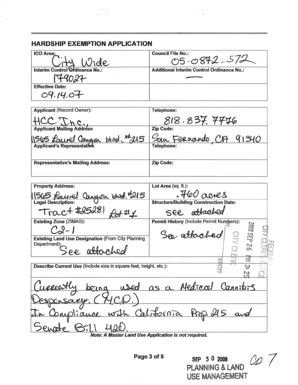 HARDSHIP EXEMPTION APPLICATION
ICO Area:
City Wide
Council File No.:
05-0872-S72
Interim Control Ordinance No.:
179027
Additional Interim Control Ordinance No.:
Effective Date:
09.14.07
Applicant (Record Owner):
HCC Inc.,
Telephone:
818.837.7776
Applicant Mailing Address
11565 Laurel Canyon blvd. #215
Zip Code:
San Fernando, CA 91340
Applicant's Representative
Telephone:
Representative's Mailing Address:
Zip Code:
Property Address:
11565 Laurel Canyon blvd. #215
Lot Area (sq. ft.):
.760 acres
Legal Description:
Tract #25281 Lot #1
Structure/Building Construction Date:
see attached
Existing Zone (ZIMAS):
C2-1
Permit History (Include Permit Numbers):
See attached
Existing Land Use Designation (From City Planning
Department):
See attached
CITY CLERK
2008 SEP 26 PM
BY
DEPUTY
Describe Current Use (Include size in square feet, height, etc.):
Currently being used as a Medical Cannibis
Despensarey. (HCD.)
In Compliance with California Prop 215 and
Senate Bill 420.
Note: A Master Land Use Application is not required.
Page 3 of 6
SEP 30 2008
PLANNING & LAND
USE MANAGEMENT